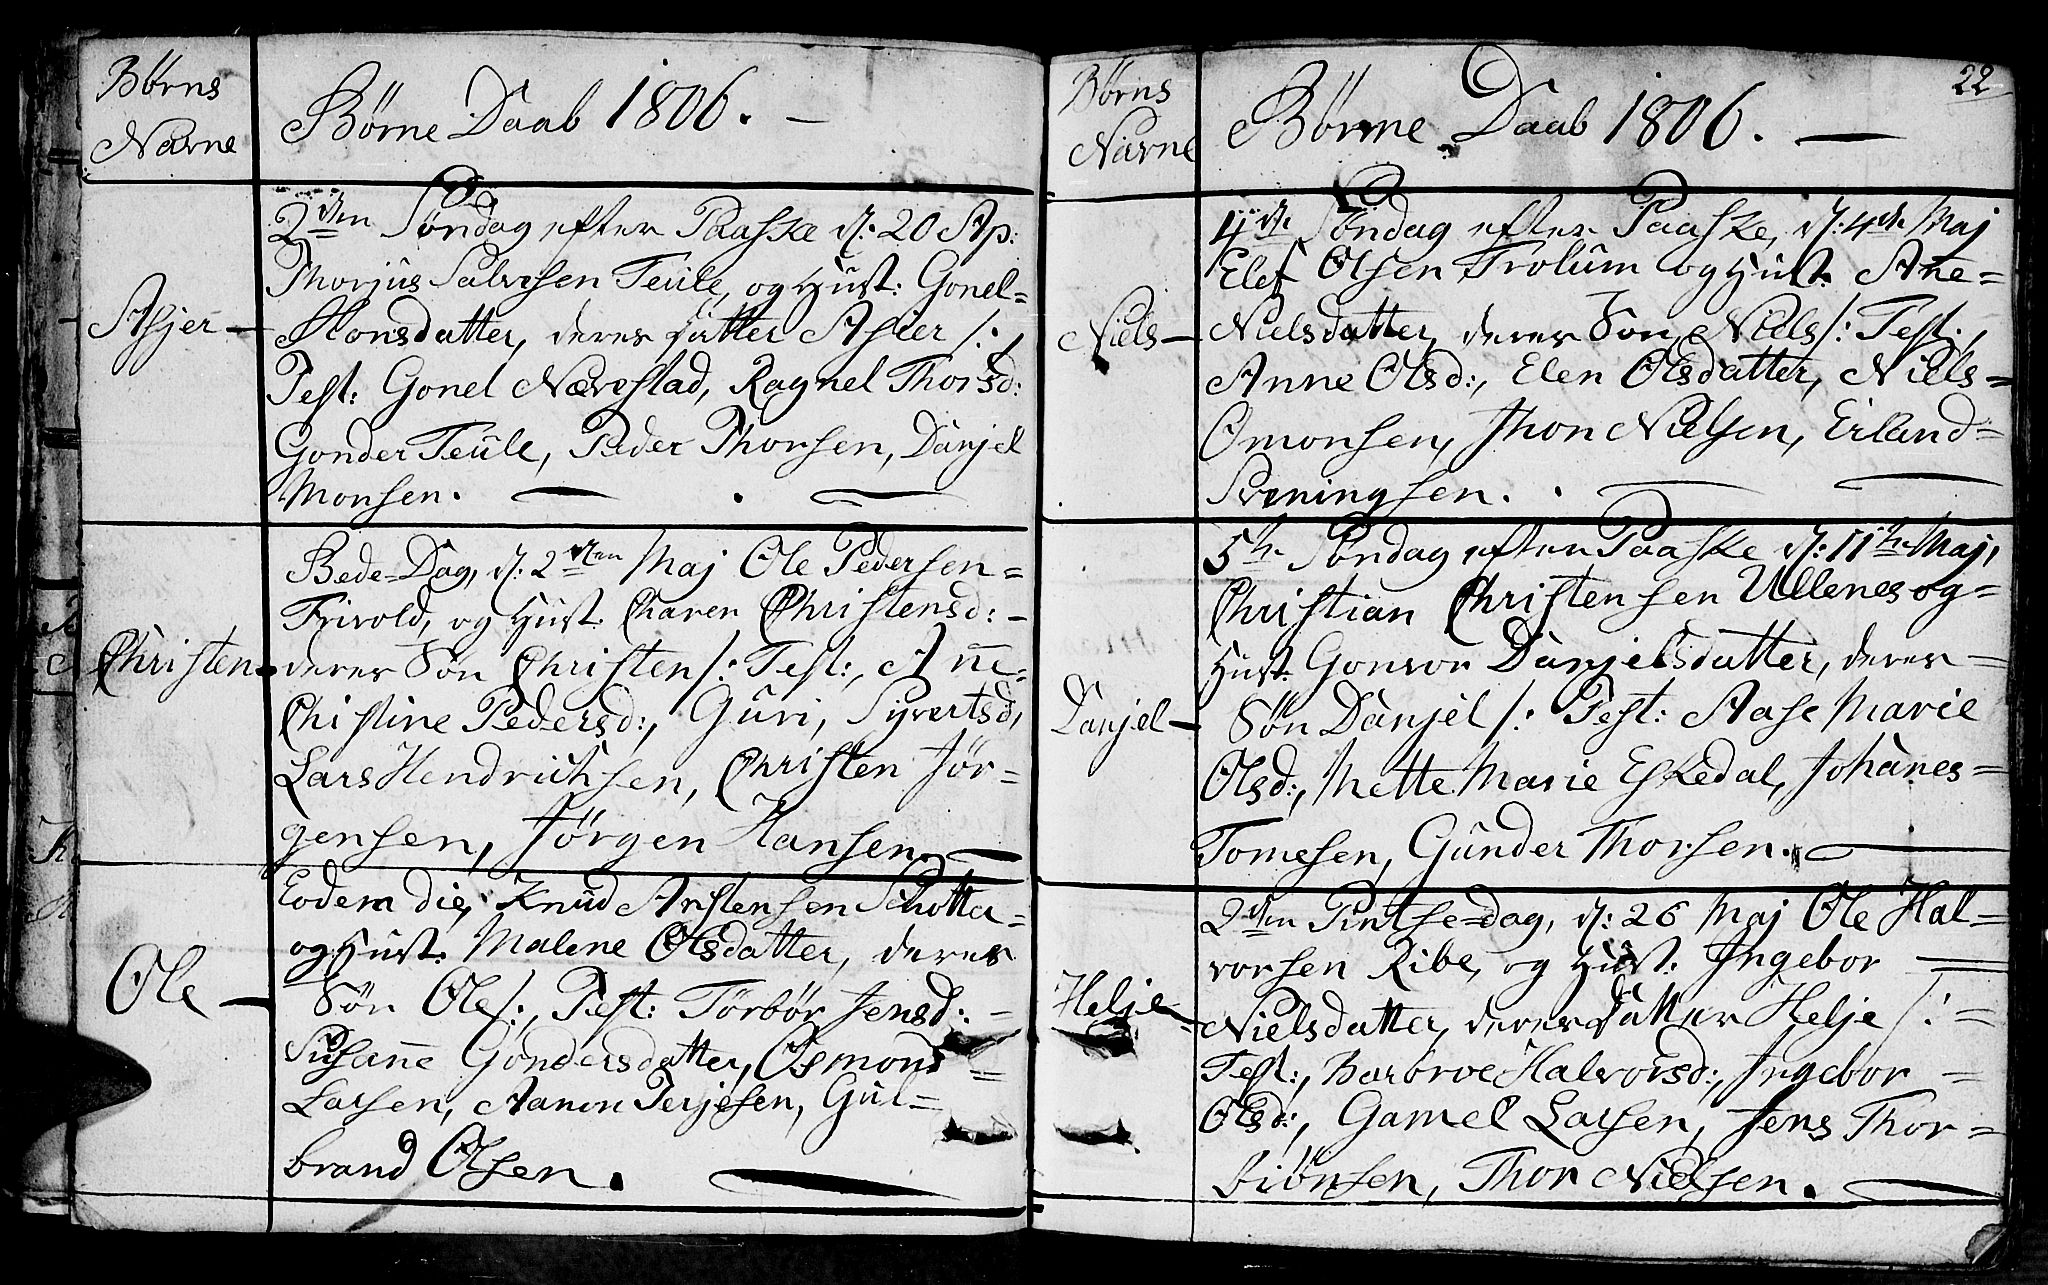 Børns
Navne
Børne Daab 1806. —
Asjer —
2den Søndag efter Paaske d: 20 Ap:
Thorjus Salvesen Teule, og Hust: Gonel=
Monsdatter, deres datter Asier /:,
Test: Gonel Nærestad, Ragnel Thorsd:
Gonder Teule, Peder Thorsen, Danjel
Monsen.
Christen
Bede-Dag, d: 2den Maj Ole Pedersen=
Frivold, og Hust. Charen Christensd: -
deres Søn Christen /: Test:, Anne=
Chistine Pedersd:, Guri, Syvertsd,
Lars Hendrichsen, Christen Jør=
gensen, Jørgen Hansen.
Ole —
Eodem die, Knud Anstensen Schotte=
og Hust: Malene Olsdatter, deres
Søn Ole /:, Test: Torbør Jensd: -
Susanne Gondersdatter, Osmond =
Larsen, Aanen Terjesen, Gul=
brand Olsen.
22
Børns
Navne
Børne Daab 1806. —
Niels —
4de Søndag efter Paaske, d: 4de Maj
Elef Olsen Trolum og Hust. Ane=
Nielsdatter, deres Søn Niels /: Test:,
Anne Olsd:, Elen Olsdatter, Niels=
Omonsen, Jhon Nielsen, Erland=
Sveningsen.
Danjel —
5te Søndag efter Paaske d: 11te Maj,
Christian Christensen Ullenes og=
Hust. Gonvor Danjelsdatter, deres=
Søn Danjel /: Test: Aase Marie
Olsd:, Mette Marie Eskedal, Johanes=
Tomesen, Gunder Thorsen.
Helje
2den Pintse-dag, d: 26 Maj Ole Hal=
vorsen Ribe, og Hust: Ingebor
Nielsdatter, deres datter Helje /: =
Test:, Barbroe Halvorsd:, Ingebor =
Olsd:, Gamel Larsen, Jens Thor=
biønsen, Thor Nielsen.